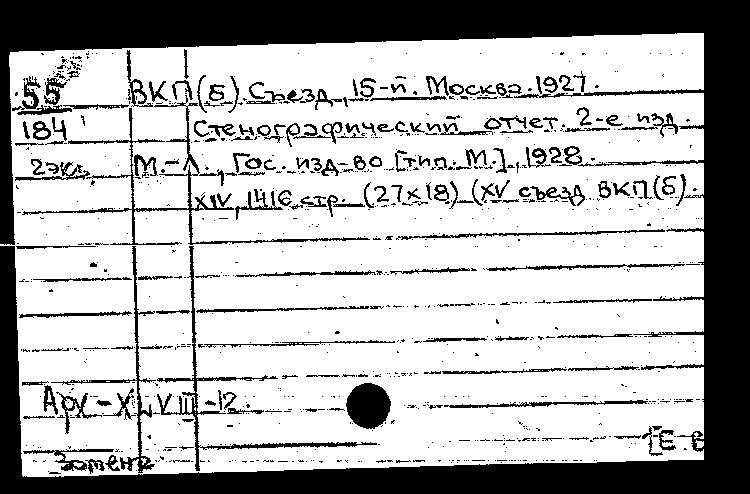 55 ВКП(б). Съезд, 15-й. Москва. 1927.
184 Стенографический отчет. 2-е изд.
2экз. М.-Л., Гос. изд-во [тип. М.], 1928.
XIV, 1416 стр. (27х18) (XV съезд ВКП(б).
Арх-XLVIII-12.
[Е.В
Замена